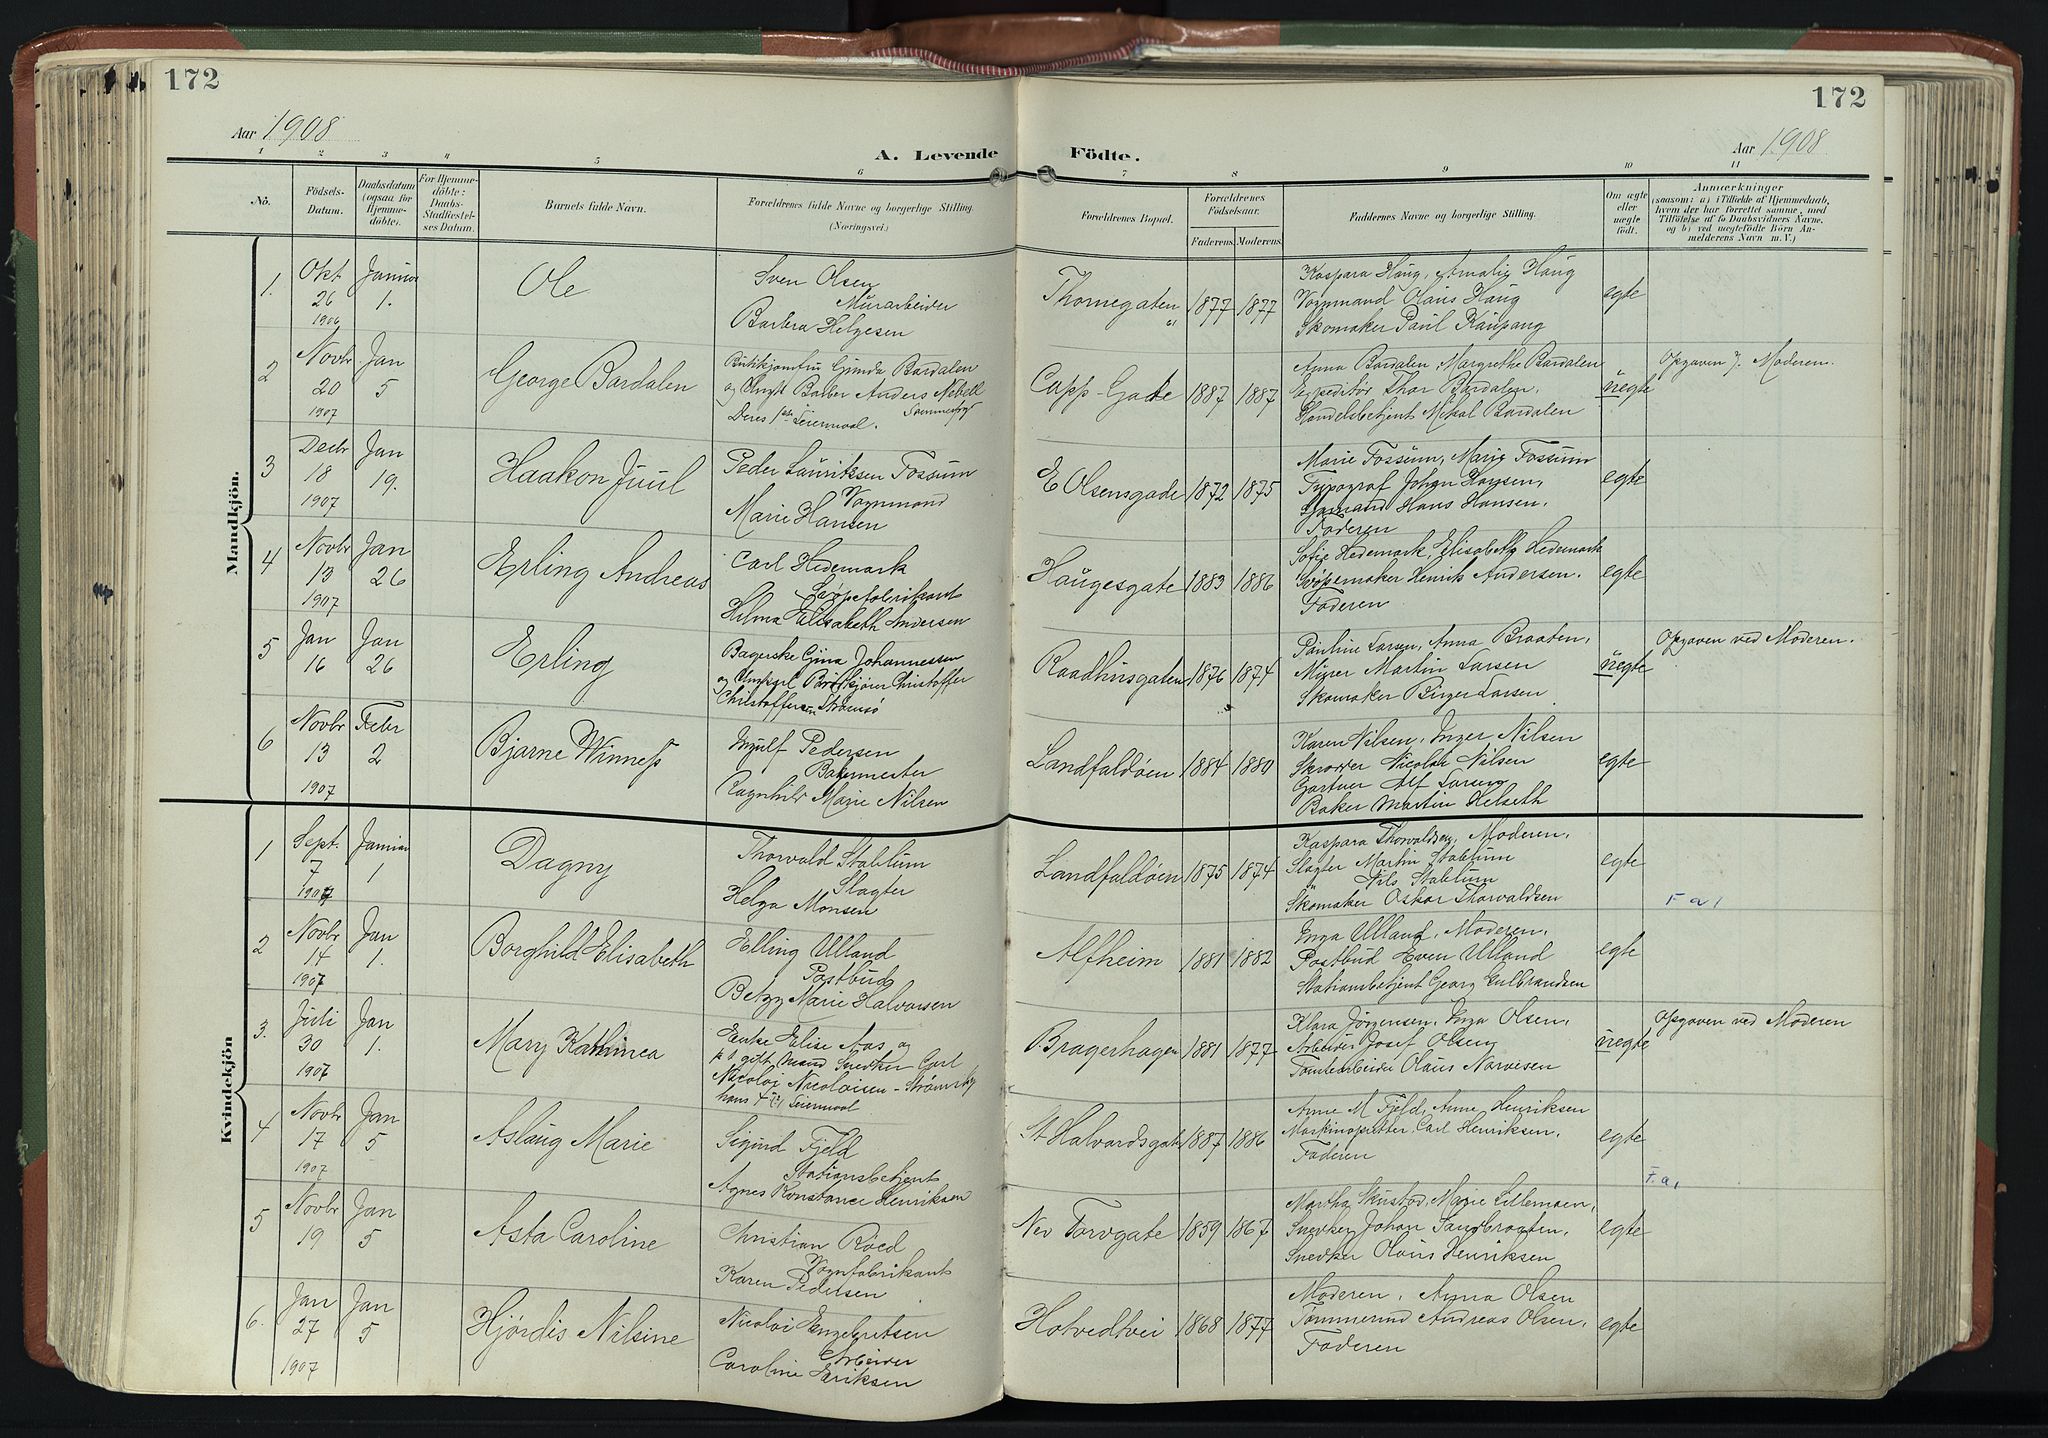 172
172
Aar 1908
A. Levende Födte.
Aar 1908
1 2 3 4 5 6 7 8 9 10 11
No.
Födsels-Datum.
Daabsdatum (ogsaa for Hjemme-döbte).
For Hjemme-döbte: Daabs-Stadfæstel-ses Datum.
Barnets fulde Navn.
Forældrenes fulde Navne og borgerlige Stilling.
(Næringsvei.)
Forældrenes Bopæl.
Forældrenes Födselsaar.
Faderens. Moderens.
Faddernes Navne og borgerlige Stilling.
Om ægte eller uægte födt.
Anmærkninger
(saasom: a) i Tilfælde af Hjemmedaab,
hvem der har forrettet samme, med
Tilföielse af to Daabsvidners Navne,
og b) ved uægtefödte Börn An-
melderens Navn m. V.)
Mandkjön.
1. Okt 26 1906 Januar 1. Ole
Sven Olsen
Murarbeider
Barbra Helgesen
Thornegaten 1877 1877
Kaspara Haug, Amalie Haug
Vognmand Olaus Haug
Skomaker Paul Kaupang
egte
2 Novbr 20 1907 Jan 5 George Bardalen
Butikjomfru Gunda Bardalen
og Ungk Balber Anders Nebell
Deres 1ste Leiermaal. Sammesteds
Capp. Gade 1887 1887
Anna Bardalen, Margrethe Bardalen
Expeditör Thor Bardalen.
Handelsbetjent Mikal Bardalen
uegte
Opgaven v. Moderen.
3 Decbr 18 1907 Jan 19. Haakon Juul
Peder Lauritsen Fossum
Vognmand
Marie Hansen
E Olsensgade 1872 1875
Marie Fossum, Marie Fossum
Typograf Johan Hansen,
Sjömand Hans Hansen.
Faderen
egte
4 Novbr 13 1907 Jan 26 Erling Andreas
Carl Hedemark
Søpefabrikant
Hilma Elisabeth Andersen
Haugesgate 1883 1886
Sofie Hedemark, Elisabeth Hedemark
Svöpemaker Henrik Andersen.
Faderen
egte
5 Jan 16 Jan 26 Erling
Bagerske Gina Johannessen
og Ungkarl Christoffer
Christoffersen Strömsö
Raadhusgaten 1876 1874
Pauline Larsen, Anna Braaten,
Murer Martin Larsen
Skomaker Birger Larsen
uegte
Opgaven ved Moderen.
6 Novbr 13 1907 Febr 2 Bjarne Winness
Ingulf Pedersen
Bakermester
Ragnhild Marie Nilsen
Landfaldöen 1884 1880
Karen Nilsen, Inger Nilsen
Skrædder Nicolai Nilsen
Gartner Alf Larsen
Baker Martin Helseth
egte
Kvindekjön
1 Sept. 7 1907 Januar 1 Dagny
Thorvald Stablum
Slagter
Helga Monsen
Landfaldöen 1875 1874
Kaspara Thorvaldsen, Moderen,
Slagter Martin Stablum
Nils Stablum
Skomaker Oskar Thorvaldsen
egte
F a 1
2 Novbr 14 1907 Jan 1. Borghild Elisabeth
Elling Ulland
Postbud
Betzy Marie Halvorsen
Alfheim 1881 1882
Inga Ulland, Moderen,
Postbud Even Ulland
Stationsbetjent Georg Gulbrandsen
egte
3. Juli 30 1907 Jan 1. Mary Kathinca
Enke Elise Aas og
gift Mand Snedker Carl
Nicolai Nicolaisen - Strömsö
hans 4de Leiermaal
Bragerhagen 1881 1877
Klara Jörgensen, Inga Olsen,
Arbeider Josef Olsen
Tomtearbeider Olaus Narvesen
uegte
Opgaven ved Moderen
4 Novbr 17 1907 Jan 5 Aslaug Marie
Sigurd Fjeld
Stationsbetjent
Agnes Konstance Henriksen
St Halvardsgate 1887 1886
Anne M Fjeld, Anne Henriksen
Maskinopsetter Carl Henriksen,
Faderen
egte
F. a 1
5 Novbr 19 Jan 5 Asta Caroline
Christian Röed
Vognfabrikant
Karen Pedersen
Nev Torvgate 1859 1867
Martha Skustad, Marie Lillemoen,
Snedker Johan Sandbraaten,
Snedker Olaus Henriksen
egte
6. Jan 27 1907 Jan 5 Hjördis Nilsine
Nicolai Engebretsen
Arbeider
Caroline Eriksen
Hotvedtvei 1868 1877
Moderen, Anna Olsen
Tömmermd Andreas Olsen,
Faderen
egte